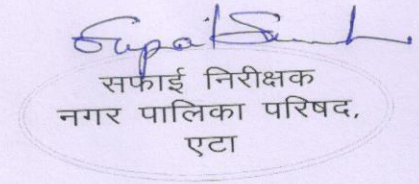 सफाई निरीक्षक
नगर पालिका परिषद,
एटा